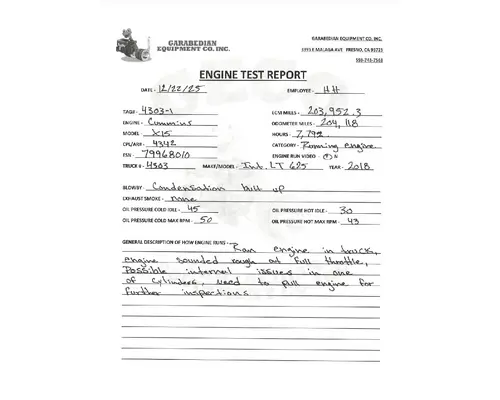 GARABEDIAN
EQUIPMENT CO. INC.
GARABEDIAN EQUIPMENT CO. INC.
E MALAGA AVE FRESNO, CA 93725
ENGINE TEST REPORT
DATE - 12/22/25 EMPLOYEE - HH
TAG# - 4303-1 ECM MILES - 203,952.3
ENGINE - Cummins ODOMETER MILES - 204,118
MODEL - X15 HOURS - 7,792
CPL/AR# - 4342 CATEGORY - Running engine
ESN - 79968010 ENGINE RUN VIDEO - Y N
TRUCK # - 4303 MAKE/MODEL - Int. LT 625 YEAR - 2018
BLOWBY - Condensation buil up
EXHAUST SMOKE - none
OIL PRESSURE COLD IDLE - 45 OIL PRESSURE HOT IDLE - 30
OIL PRESSURE COLD MAX RPM - 50 OIL PRESSURE HOT MAX RPM - 43
GENERAL DESCRIPTION OF HOW ENGINE RUNS - Ran engine in truck,
engine sounded rough at full throttle,
Possible internal issues in one
of cylinders, need to pull engine for
further inspections